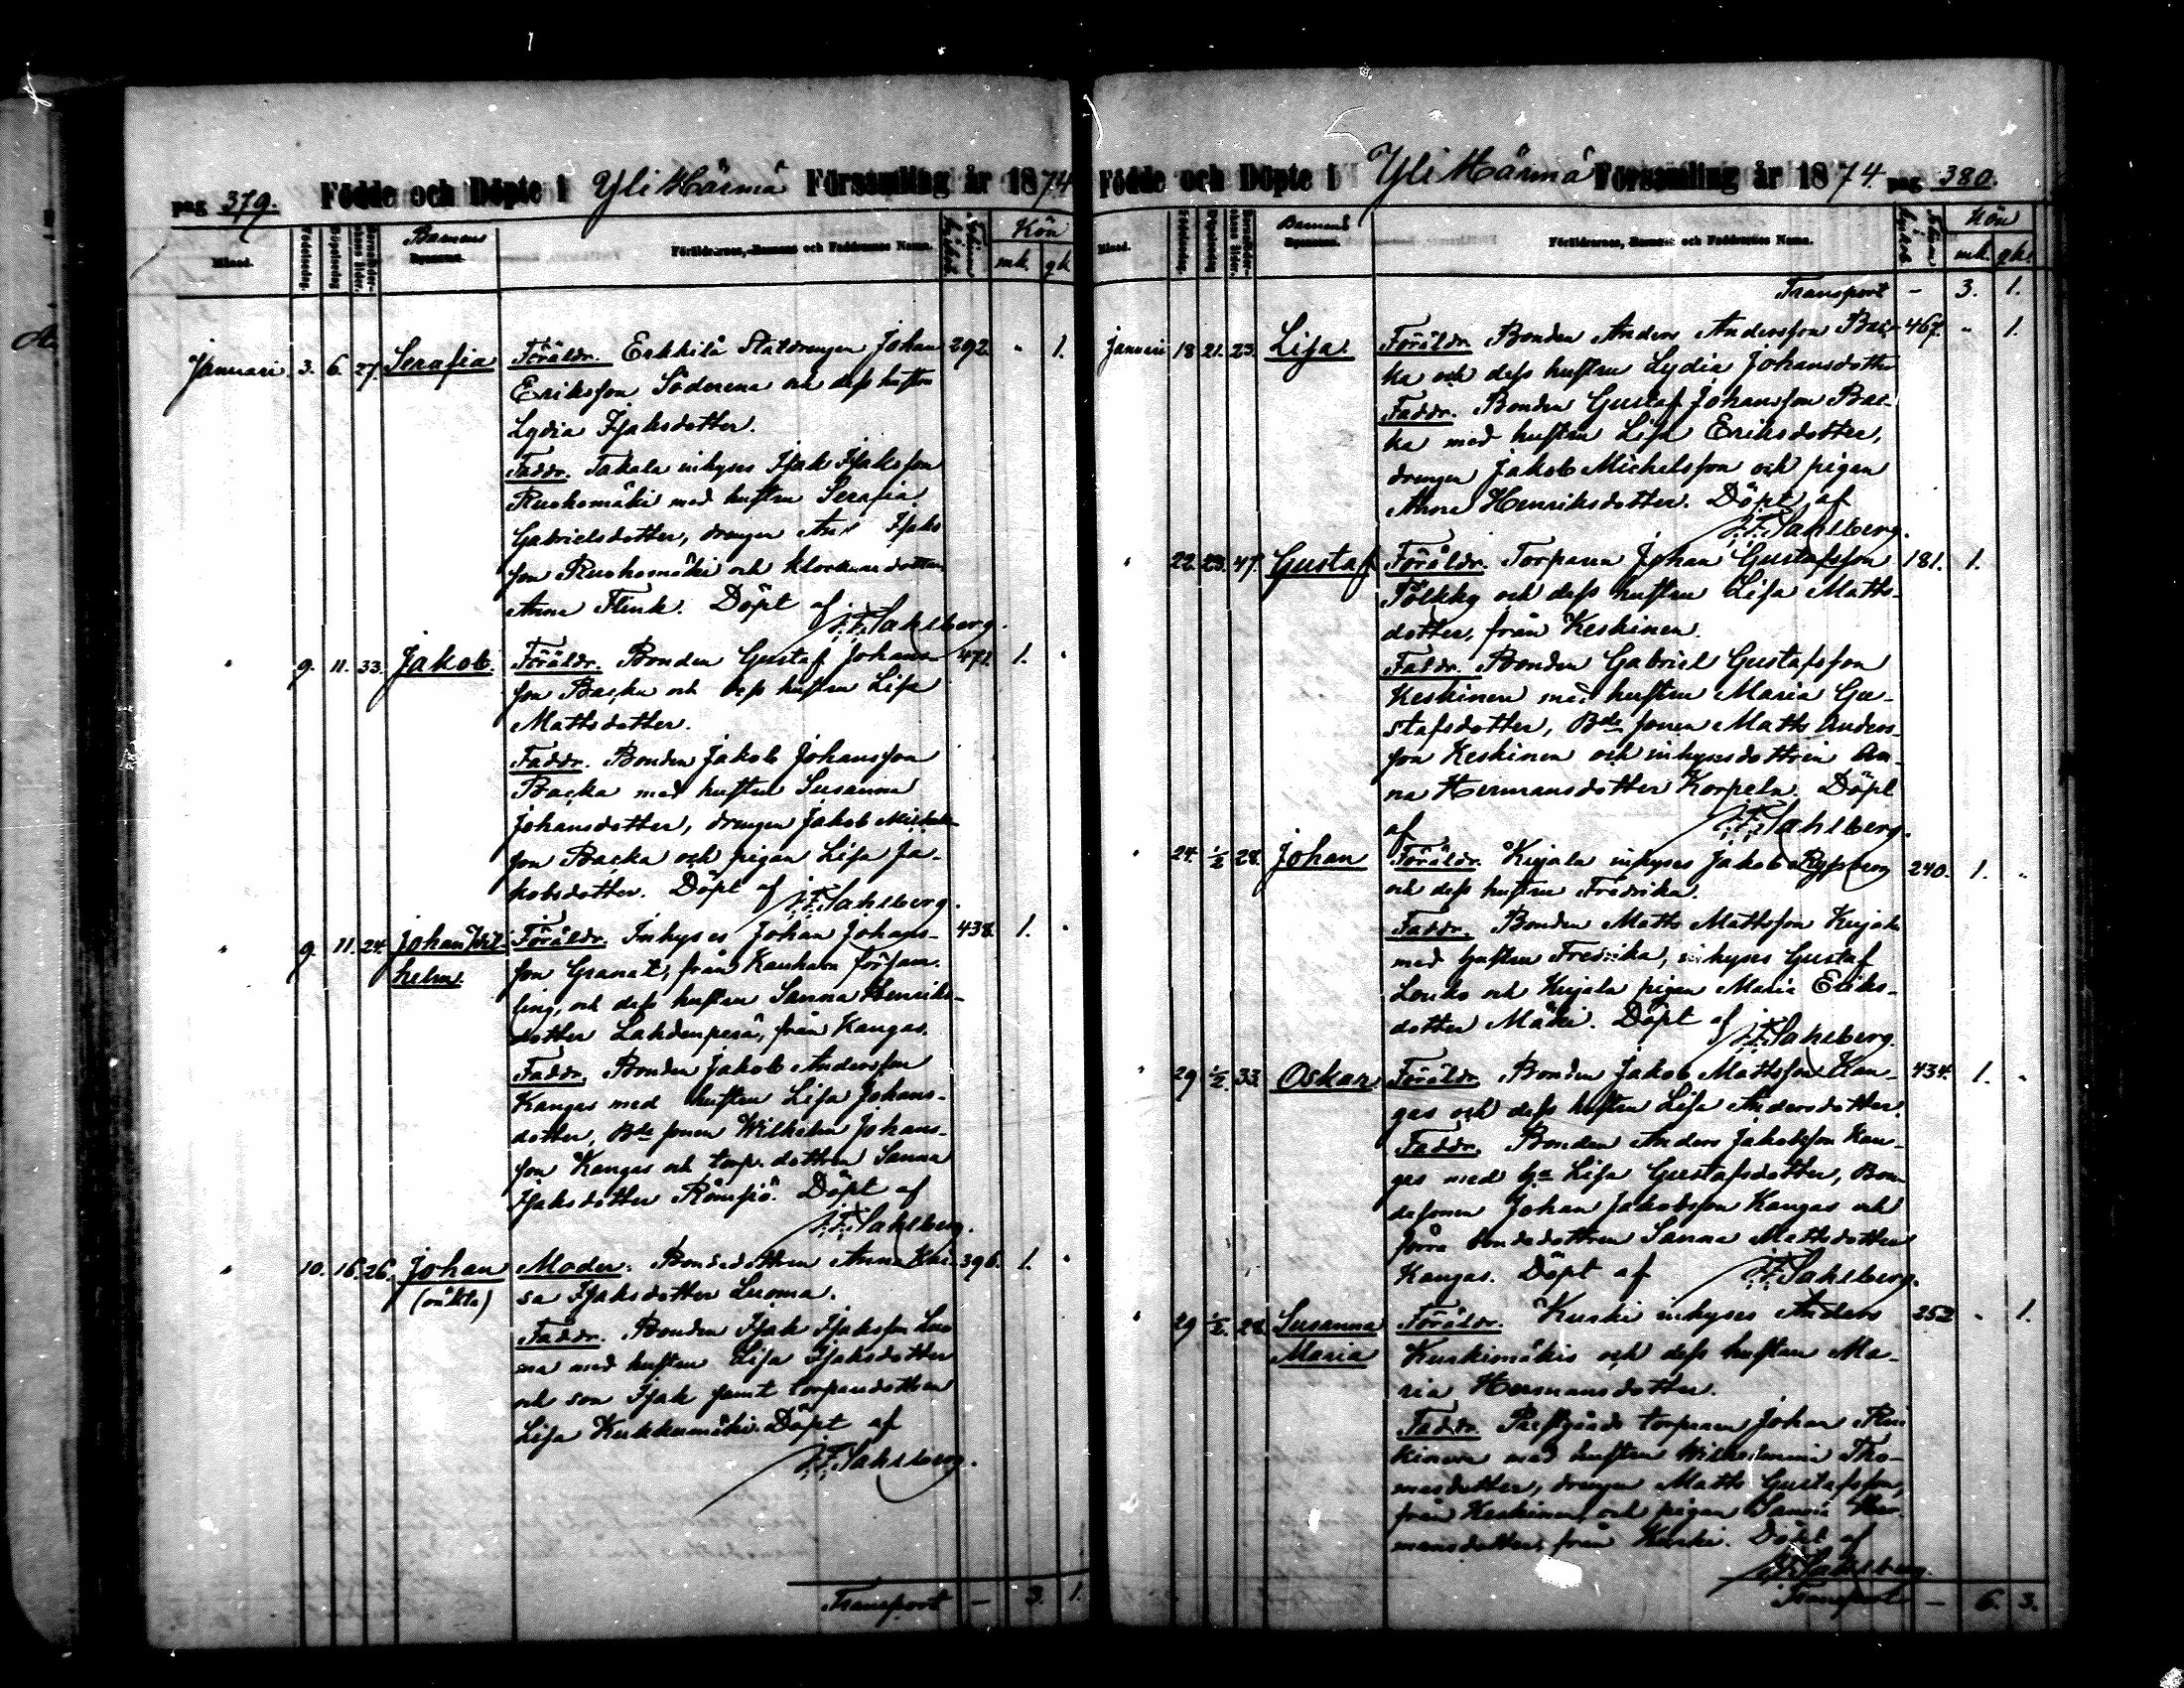 pag 379. Födde och Döpte i Yli Härmä Församling år 1874
Månad. Födelsedag. Döpelsedag Barnens Föräldrarnes, Barnens och Faddrarnes Namn. Kön
mk. qk
Januari 3. 6. 27. Serafia Föräldr. Erkkilä Staldrengen Johan 292. " 1.
Eriksson Söderena och dess hustru
Lydia Isaksdotter.
Faddr. Takala inhyses Isak Isaksson
Ruohomäki med hustru Serafia
Gabrielsdotter, drengen Isaks
son Ruohomäki och klockaredottern
Anna Flink. Döpt af
J.F. Sahlberg.
" 9. 11. 33. Jakob. Föräldr. Bonden Gustaf Johans 471. 1. "
son Backa och dess hustru Lisa
Mattsdotter.
Faddr. Bonden Jakob Johansson
Backa med hustru Susanna
Johansdotter, drengen Jakob Michels
son Backa och pigan Lisa Ja-
kobsdotter. Döpt af J.F. Sahlberg.
" 9. 11. 24. Johan Wil- Föräldr. Inhyses Johan Johans- 438. 1. "
helm. son Granat, från Kauhava försam-
ling, och dess hustru Sanna Henriks-
dotter Lahdenperä, från Kangas.
Faddr. Bonden Jakob Andersson
Kangas med hustru Lisa Johans-
dotter, Bde sonen Wilhelm Johans-
son Kangas och torp. dottren Sanna
Isaksdotter Rämsjö. Döpt af
J.F. Sahlberg.
" 10. 16. 26. Johan Moder. Bondedottren Anna Kai- 396. 1. "
(oäkta) sa Isaksdotter Luoma.
Faddr. Bonden Isak Isaksson Luo
ma med hustru Lisa Isaksdotter
och son Isak samt torparedottren
Lisa Kukkumäki. Döpt af
J.F. Sahlberg.
Transport — 3. 1.
Födde och Döpte i Yli Härmä Församling år 1874. pag 380.
Månad. Födelsedag. Döpelsedag Barnens Föräldrarnes, Barnens och Faddrarnes Namn. Kön
mk. qk.
Transport — 3. 1.
Januari 18 21. 23. Lisa. Föräldr. Bonden Anders Andersson Bac- 467. " 1.
ka och dess hustru Lydia Johansdotter
Faddr. Bonden Gustaf Johansson Bac-
ka med hustru Lisa Eriksdotter,
drengen Jakob Michelsson och pigan
Anna Henriksdotter. Döpt af
J.F. Sahlberg.
" 22. 23. 47. Gustaf Föräldr. Torparen Johan Gustafsson 181. 1.
Pölkky och dess hustru Lisa Matts-
dotter, från Keskinen.
Faddr. Bonden Gabriel Gustafsson
Keskinen med hustru Maria Gu-
stafsdotter, Bde sonen Matts Anders-
son Keskinen och inhysesdottren An-
na Hermansdotter Korpela. Döpt
af J.F. Sahlberg.
" 24. 1/2 28. Johan Föräldr. Kujala inhyses Jakob 240. 1. "
och dess hustru Fredrika.
Faddr. Bonden Matts Mattsson Kujala
med hustru Fredrika, inhyses Gustaf
Louko och Kujala pigan Maria Eriks-
dotter Mäki. Döpt af J.F. Sahlberg.
" 29 1/2. 33. Oskar Föräldr. Bonden Jakob Mattsson Kan- 434. 1. "
gas och dess hustru Lisa Andersdotter.
Faddr. Bonden Anders Jakobsson Kan-
gas med h:a Lisa Gustafsdotter, Bon-
desonen Johan Jakobsson Kangas och
förra bondedottren Sanna Mattsdotter
Kangas. Döpt af J.F. Sahlberg.
" 29 1/2. 28. Susanna Föräldr. Kuski inhyses Anders 252 " 1.
Maria Kuskimäkis och dess hustru Ma-
ria Hermansdotter.
Faddr. Prestgårds torparen Johan
med hustru Wilhelmina Tho-
masdotter, drengen Matts Gustafsson,
från Keskinen och pigan Sanna Her-
mansdotter från Kuski. Döpt af
J.F. Sahlberg.
Transport — 6. 3.